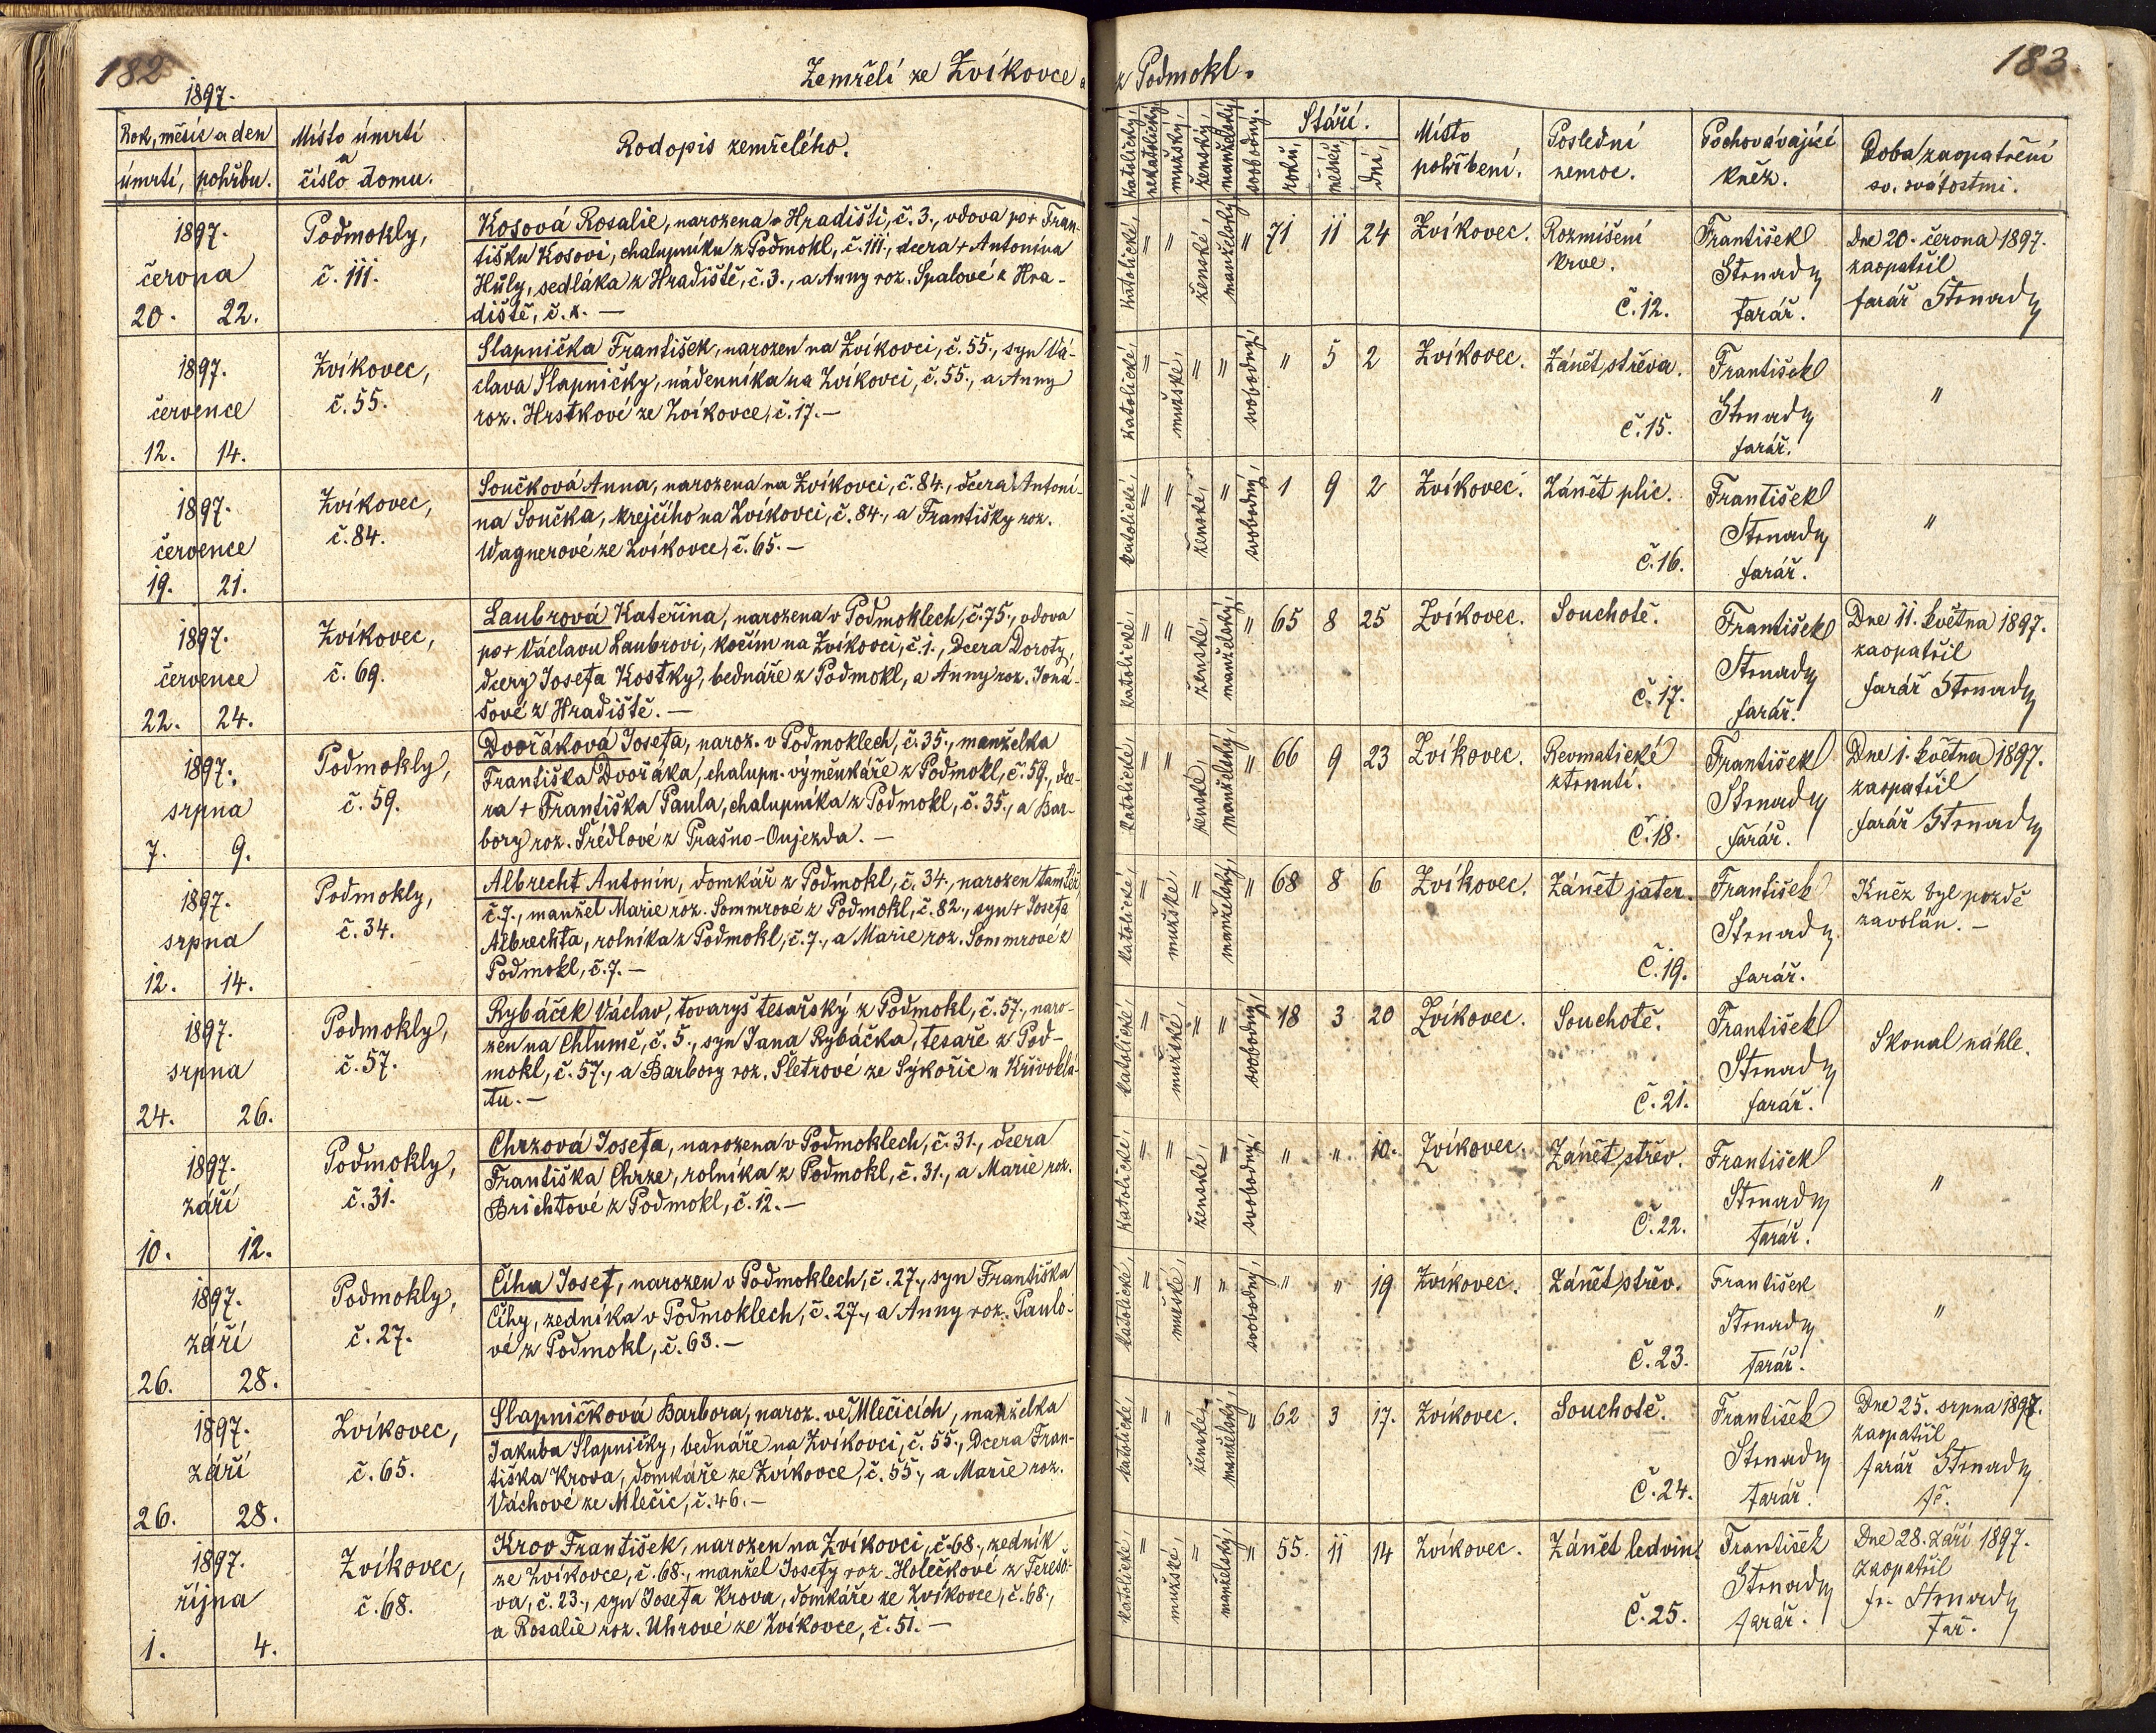 182
1897.
Zemřelí ze Zvíkovce a
z Podmokl.
183.
Rok, měsíc a den
úmrtí, pohřbu.
Místo úmrtí
a
číslo domu.
Rodopis zemřelého.
katolický,
nekatolický,
mužský,
ženský,
manželský,
svobodný.
Stáří.
roků,
měsíců,
dní,
Místo
pohřbení.
Poslední
nemoc.
Pochovávající
kněz.
Doba zaopatření
sv. svátostmi.
1897.
června
20. 22.
Podmokly,
č. 111.
Kosová Rosalie, narozena v Hradišti, č. 3., vdova po + Fran-
tišku Kosovi, chalupníku z Podmokl, č. 111., dcera + Antonína
Hůly, sedláka z Hradiště, č. 3., a Anny roz. Spalové z Hra-
diště, č. x. —
katolické, " " ženské, manželský, " 71 11 24
Zvíkovec.
Rozmíšení
krve.
Č. 12.
František
Strnady
farář.
Dne 20. června 1897.
zaopatřil
farář Strnady
1897.
července
12. 14.
Zvíkovec,
č. 55.
Slapnička František, narozen na Zvíkovci, č. 55., syn Vá-
clava Slapničky, nádenníka na Zvíkovci, č. 55., a Anny
roz. Hrstkové ze Zvíkovce, č. 17. —
katolické, " mužské, " " svobodný, " 5 2
Zvíkovec.
Zánět střeva.
Č. 15.
František
Strnady
farář.
"
1897.
července
19. 21.
Zvíkovec,
č. 84.
Součková Anna, narozena na Zvíkovci, č. 84., dcera Antoní-
na Součka, krejčího na Zvíkovci, č. 84., a Františky roz.
Wagnerové ze Zvíkovce, č. 65. —
katolické, " " ženské, " svobodný, 1 9 2
Zvíkovec.
Zánět plic.
Č. 16.
František
Strnady
farář.
"
1897.
července
22. 24.
Zvíkovec,
č. 69.
Laubrová Kateřina, narozena v Podmoklech, č. 75., vdova
po + Václavu Laubrovi, kočím na Zvíkovci, č. 1., dcera Doroty,
dcery Josefa Kostky, bednáře z Podmokl, a Anny roz. Joná-
šové z Hradiště. —
katolické, " " ženské, manželský, " 65 8 25
Zvíkovec.
Souchotě.
Č. 17.
František
Strnady
farář.
Dne 11. května 1897.
zaopatřil
farář Strnady
1897.
srpna
7. 9.
Podmokly,
č. 59.
Dvořáková Josefa, naroz. v Podmoklech, č. 35., manželka
Františka Dvořáka, chalupn. výměnkáře z Podmokl, č. 59., dce-
ra + Františka Paula, chalupníka z Podmokl, č. 35., a Bar-
bory roz. Šrédlové z Prašno-Oujezda. —
katolické, " " ženské, manželský, " 66 9 23
Zvíkovec.
Revmatické
ztrnutí.
Č. 18.
František
Strnady
farář.
Dne 1. května 1897.
zaopatřil
farář Strnady
1897.
srpna
12. 14.
Podmokly,
č. 34.
Albrecht Antonín, domkář z Podmokl, č. 34., narozen tamtéž
č. 7., manžel Marie roz. Sommrové z Podmokl, č. 82., syn + Josefa
Albrechta, rolníka z Podmokl, č. 7., a Marie roz. Sommrové z
Podmokl, č. 7. —
katolické, " mužské, " manželský, " 68 8 6
Zvíkovec.
Zánět jater.
Č. 19.
František
Strnady
farář.
Kněz byl pozdě
zavolán. —
1897.
srpna
24. 26.
Podmokly,
č. 57.
Rybáček Václav, tovaryš tesařský z Podmokl, č. 57., naro-
zen na Chlumě, č. 5., syn Jana Rybáčka, tesaře z Pod-
mokl, č. 57., a Barbory roz. Šletrové ze Sýkořic u Křivoklá-
tu. —
katolické, " mužské, " " svobodný, 18 3 20
Zvíkovec.
Souchotě.
Č. 21.
František
Strnady
farář.
Skonal náhle.
1897.
září
10. 12.
Podmokly,
č. 31.
Chrzová Josefa, narozena v Podmoklech, č. 31., dcera
Františka Chrze, rolníka z Podmokl, č. 31., a Marie roz.
Brichtové z Podmokl, č. 12. —
katolické, " " ženské, " svobodný, " " 10.
Zvíkovec.
Zánět střev.
Č. 22.
František
Strnady
farář.
"
1897.
září
26. 28.
Podmokly,
č. 27.
Číha Josef, narozen v Podmoklech, č. 27., syn Františka
Číhy, zedníka v Podmoklech, č. 27., a Anny roz. Paulo-
vé z Podmokl, č. 63. —
katolické, " mužské, " " svobodný, " " 19
Zvíkovec.
Zánět střev.
Č. 23.
František
Strnady
farář.
"
1897.
září
26. 28.
Zvíkovec,
č. 65.
Slapničková Barbora, naroz. ve Mlečicích, manželka
Jakuba Slapničky, bednáře na Zvíkovci, č. 55., dcera Fran-
tiška Krova, domkáře ze Zvíkovce, č. 55., a Marie roz.
Váchové ze Mlečic, č. 46. —
katolické, " " ženské, manželský, " 62 3 17.
Zvíkovec.
Souchotě.
Č. 24.
František
Strnady
farář.
Dne 25. srpna 1897.
zaopatřil
farář Strnady
1897.
října
1. 4.
Zvíkovec,
č. 68.
Krov František, narozen na Zvíkovci, č. 68., zedník
ze Zvíkovce, č. 68., manžel Josefy roz. Holečkové z Terešo-
va, č. 23., syn Josefa Krova, domkáře ze Zvíkovce, č. 68.,
a Rosalie roz. Uhrové ze Zvíkovce, č. 51. —
katolické, " mužské, " manželský, " 55. 11 14
Zvíkovec.
Zánět ledvin.
Č. 25.
František
Strnady
farář.
Dne 28. září 1897.
zaopatřil
fr. Strnady
far.